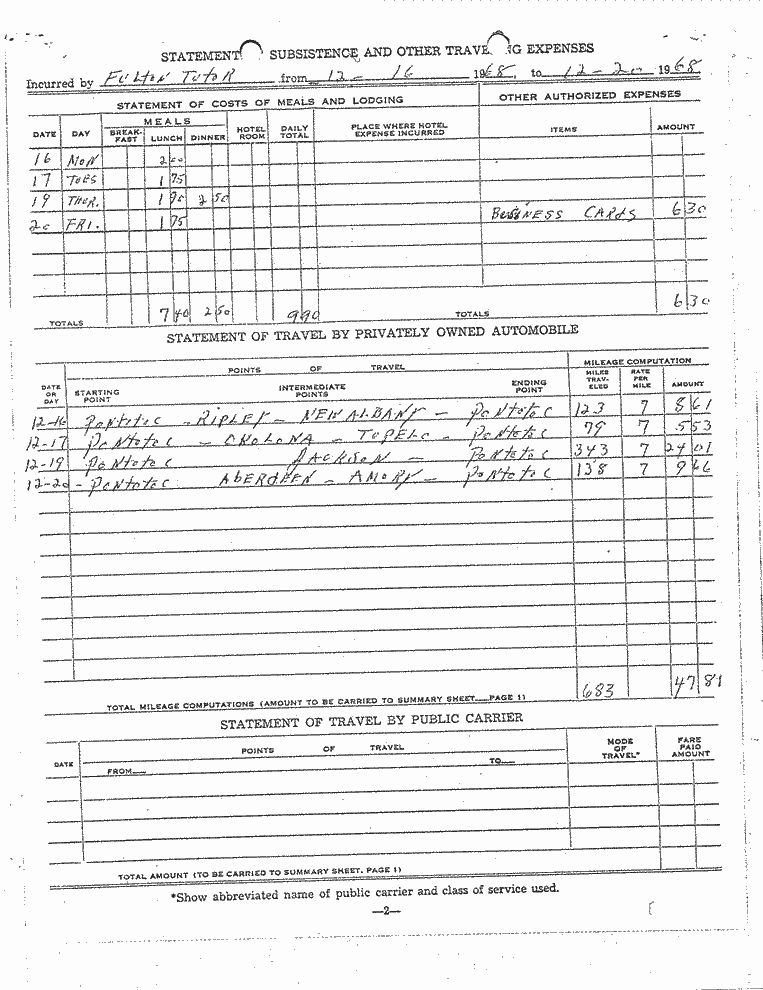 STATEMENT SUBSISTENCE AND OTHER TRAVE NG EXPENSES
Incurred by Fulton Tutor from 12 - 16 1968, to 12-20 1968
STATEMENT OF COSTS OF MEALS AND LODGING OTHER AUTHORIZED EXPENSES
DATE DAY MEALS BREAK-FAST LUNCH DINNER HOTEL ROOM DAILY TOTAL PLACE WHERE HOTEL EXPENSE INCURRED ITEMS AMOUNT
16 MON 2 00
17 TUES 1 75
19 THUR. 1 90 2 50
20 FRI. 1 75 BUSINESS CARDS 6 30
TOTALS 7 40 2 50 9 90 TOTALS 6 30
STATEMENT OF TRAVEL BY PRIVATELY OWNED AUTOMOBILE
POINTS OF TRAVEL MILEAGE COMPUTATION
DATE OR DAY STARTING POINT INTERMEDIATE POINTS ENDING POINT MILES TRAV-ELED RATE PER MILE AMOUNT
12-16 Pontotoc - RIPLEY - NEW ALBANY - Pontotoc 123 7 8 61
12-17 Pontotoc - OKOLONA - TUPELO - Pontotoc 79 7 5 53
12-19 Pontotoc JACKSON - Pontotoc 343 7 24 01
12-20 - Pontotoc ABERDEEN - AMORY - Pontotoc 138 7 9 66
TOTAL MILEAGE COMPUTATIONS (AMOUNT TO BE CARRIED TO SUMMARY SHEET PAGE 1) 683 47 81
STATEMENT OF TRAVEL BY PUBLIC CARRIER
DATE POINTS OF TRAVEL MODE OF TRAVEL* FARE PAID AMOUNT
FROM TO
TOTAL AMOUNT (TO BE CARRIED TO SUMMARY SHEET, PAGE 1)
*Show abbreviated name of public carrier and class of service used.
—2—